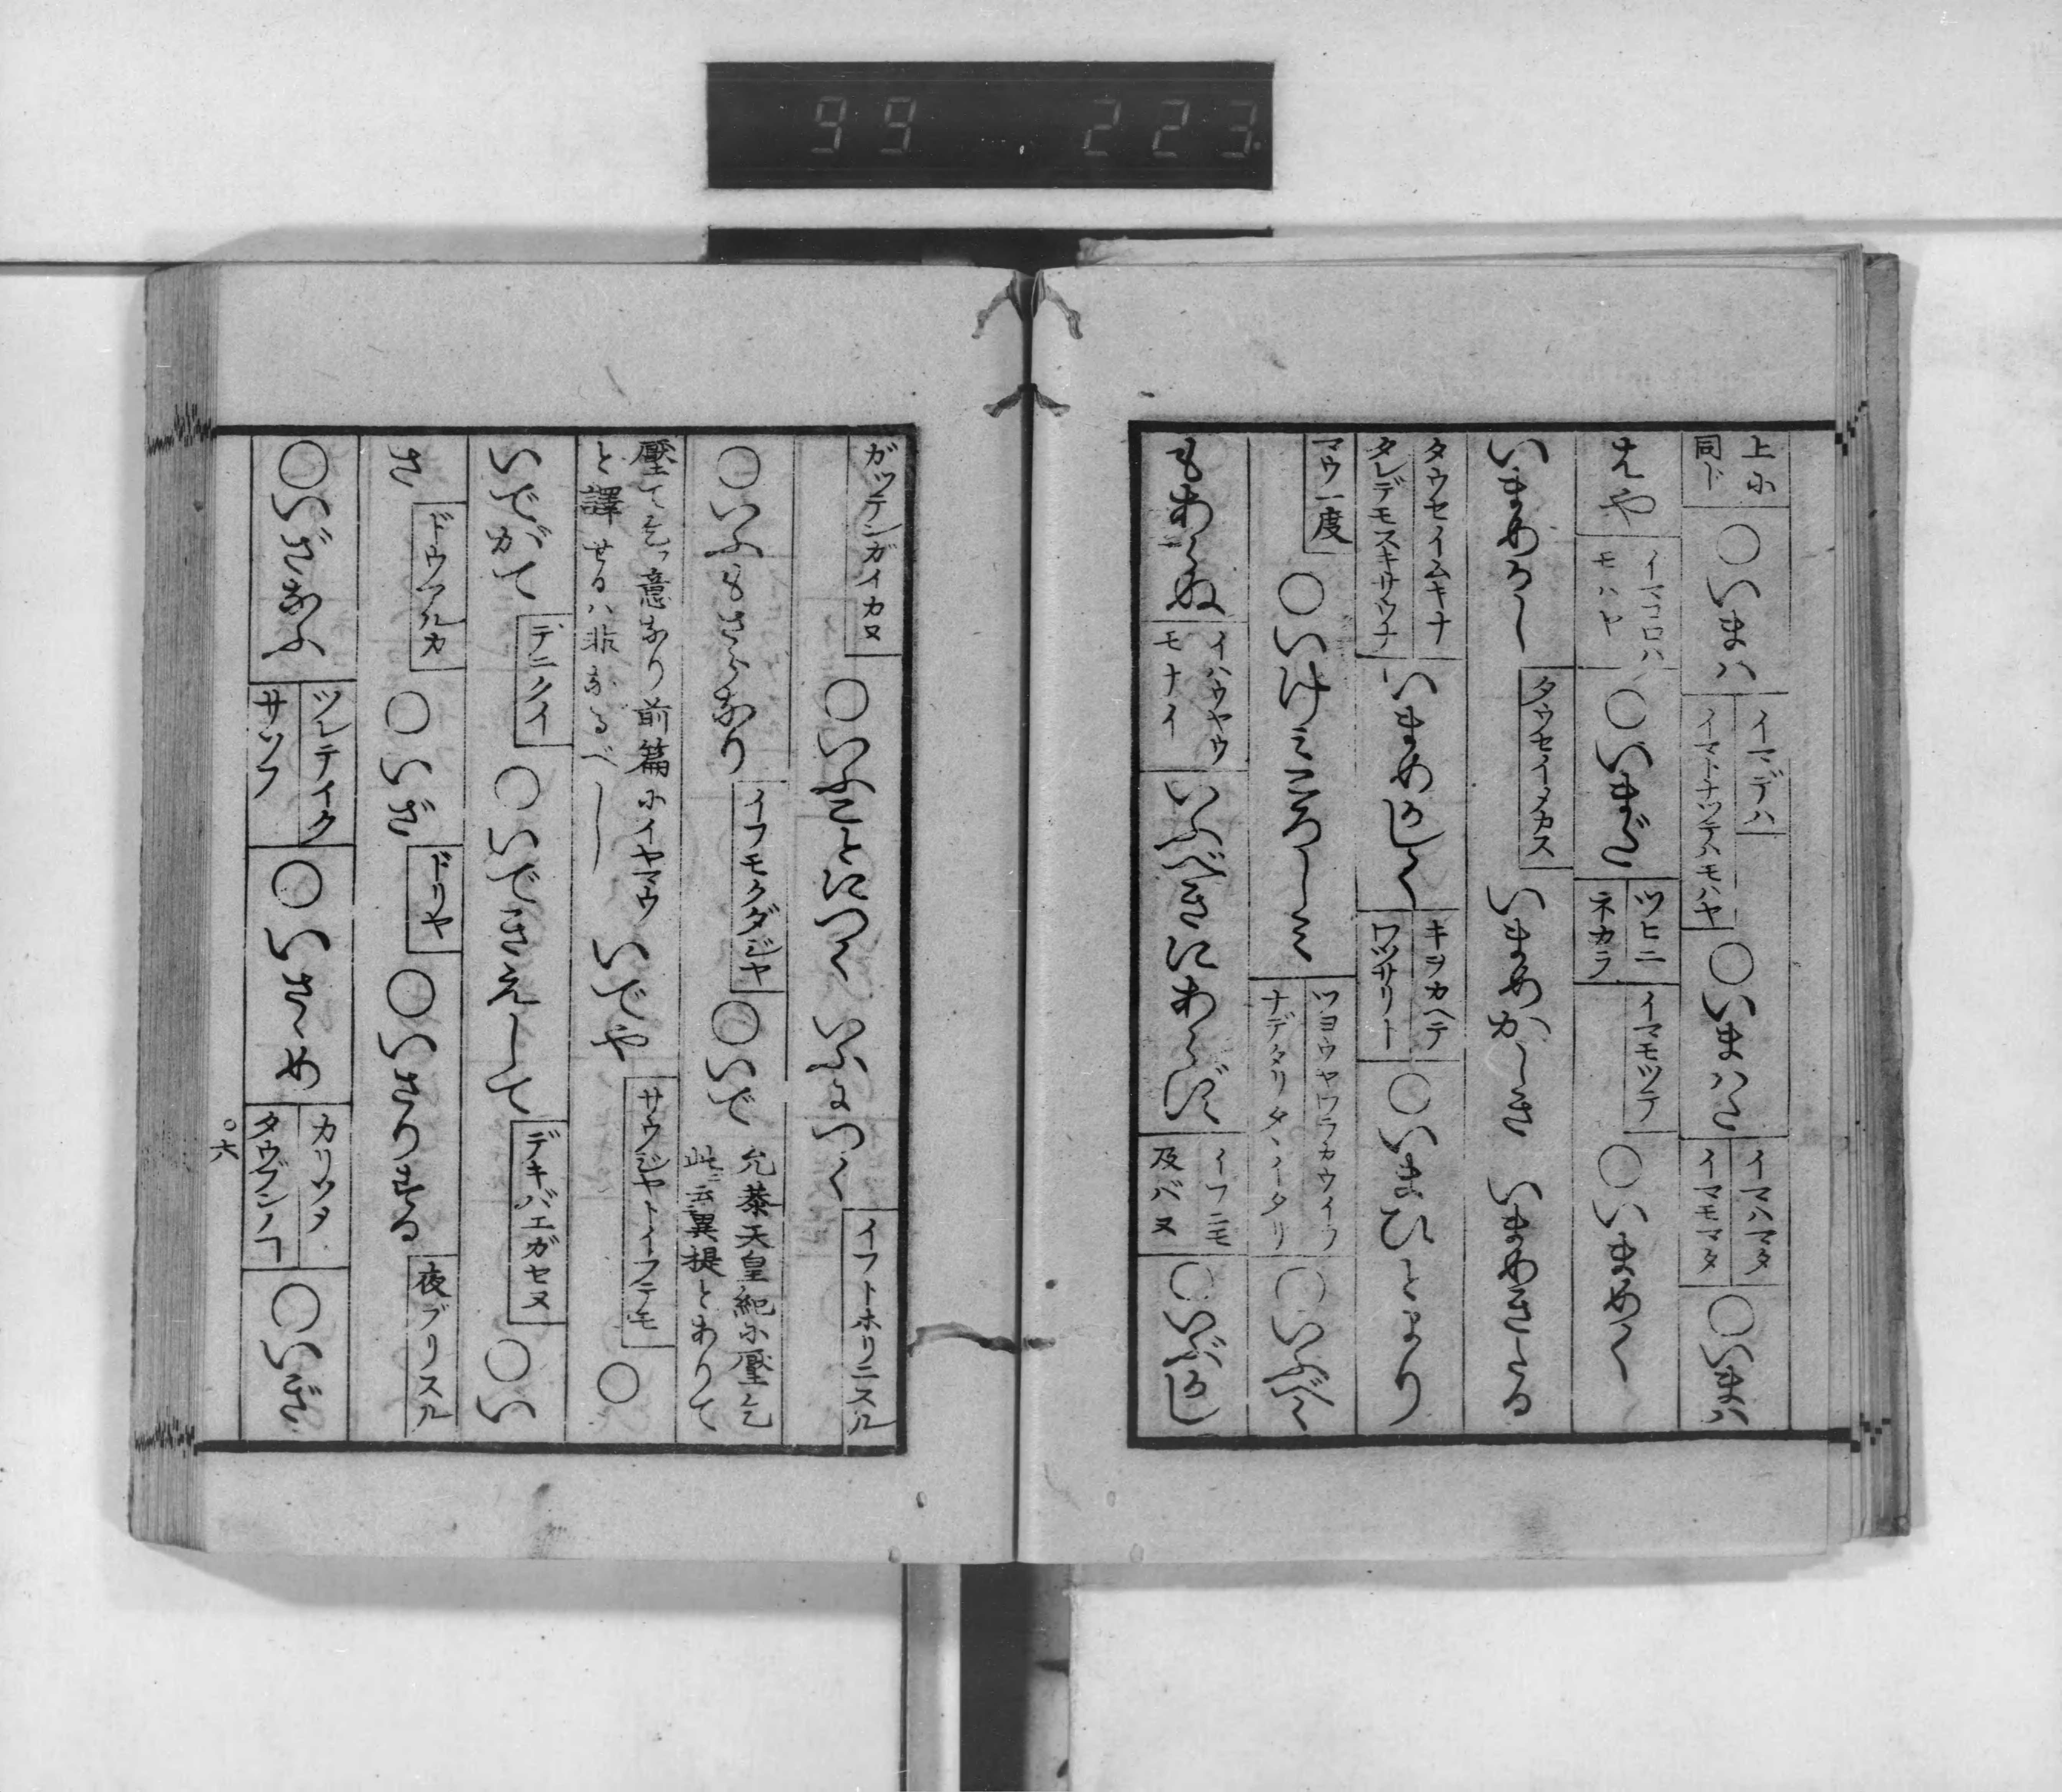 99 223
上に同ド ○いまハ イマデハ イマトナツテハモハヤ ○いまハた イマハマタ イマモマタ ○いまハ
はや イマコロハ モハヤ ○いまだ ツヒニ ネカラ イマモツテ ○いまめく
いまめかし タウセイメカス いまめかしき いまめきたる
タウセイムキナ タレデモスキサウナ いまめかしく キヲカヘテ ワツサリト ○いまひとより
マウ一度 ○いけミころしミ ツヨウヤワラカウイフ ナデタリタヽイタリ ○いふべく
もあらぬ イハウヤウ モナイ いふべきにあらず イフニモ 及バヌ ○いぶかし
ガツテンガイカヌ ○いふことにつく いふにつく イフトホリニスル
○いふもさらなり イフモクダジヤ ○いで 允恭天皇紀に壓乞 此云異提とありて
壓て乞つ意なり前篇にイヤマウ と譯せるハ非なるべし いでや サウジヤトイフテモ ○
いでがて デニクイ ○いできえして デキバエガセヌ ○い
さ ドウアルカ ○いざ ドリヤ ○いさりする 夜ブリスル
○いざなふ ツレテイク サソフ ○いさゝめ カリソメ タウブンノヿ ○いざ
○六